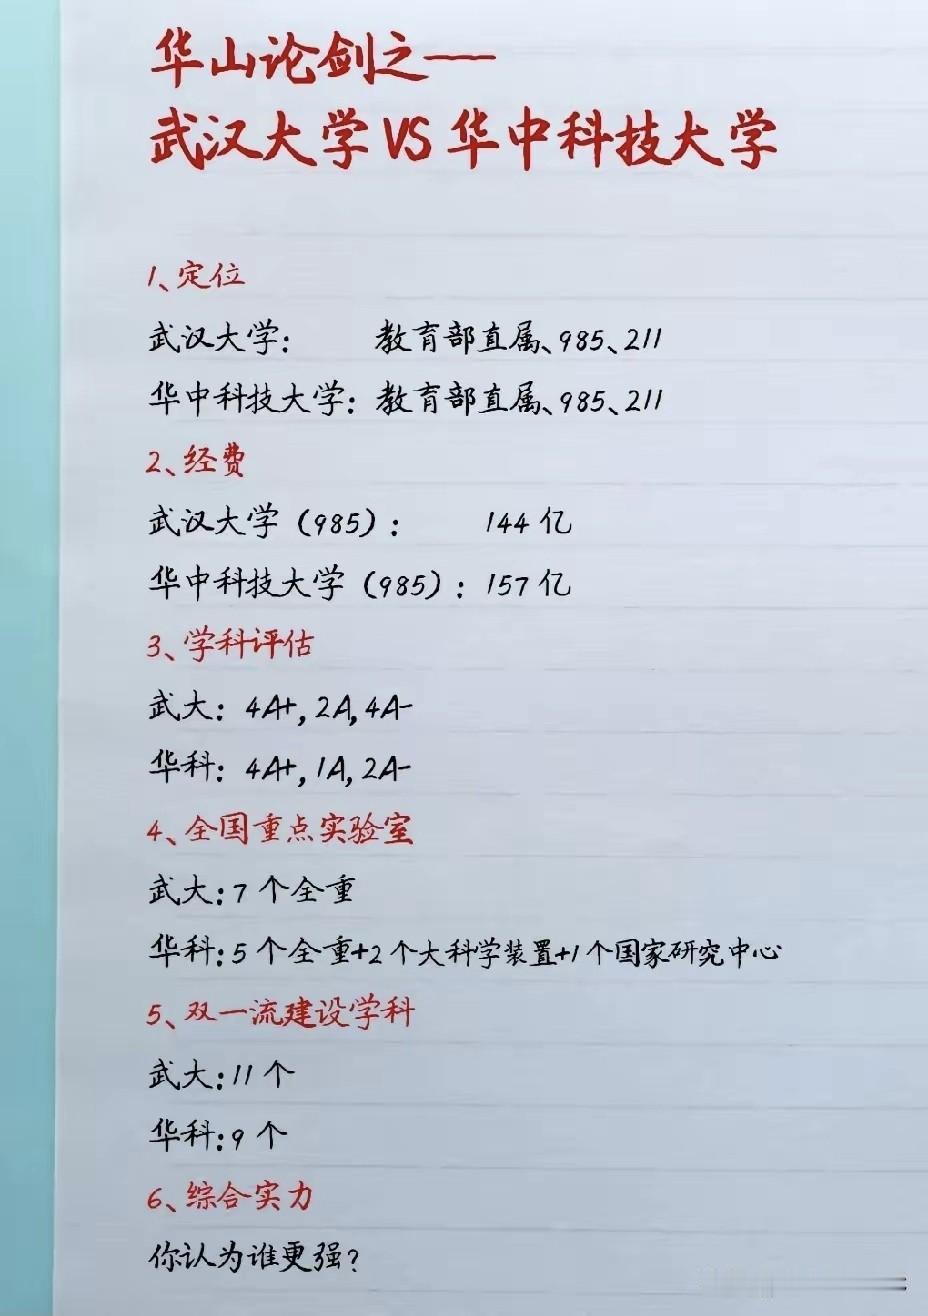 华山论剑之——
武汉大学VS华中科技大学
1、定位
武汉大学： 教育部直属、985、211
华中科技大学：教育部直属、985、211
2、经费
武汉大学（985）： 144亿
华中科技大学（985）：157亿
3、学科评估
武大：4A+,2A,4A-
华科：4A+,1A,2A-
4、全国重点实验室
武大：7个全重
华科：5个全重+2个大科学装置+1个国家研究中心
5、双一流建设学科
武大：11个
华科：9个
6、综合实力
你认为谁更强？